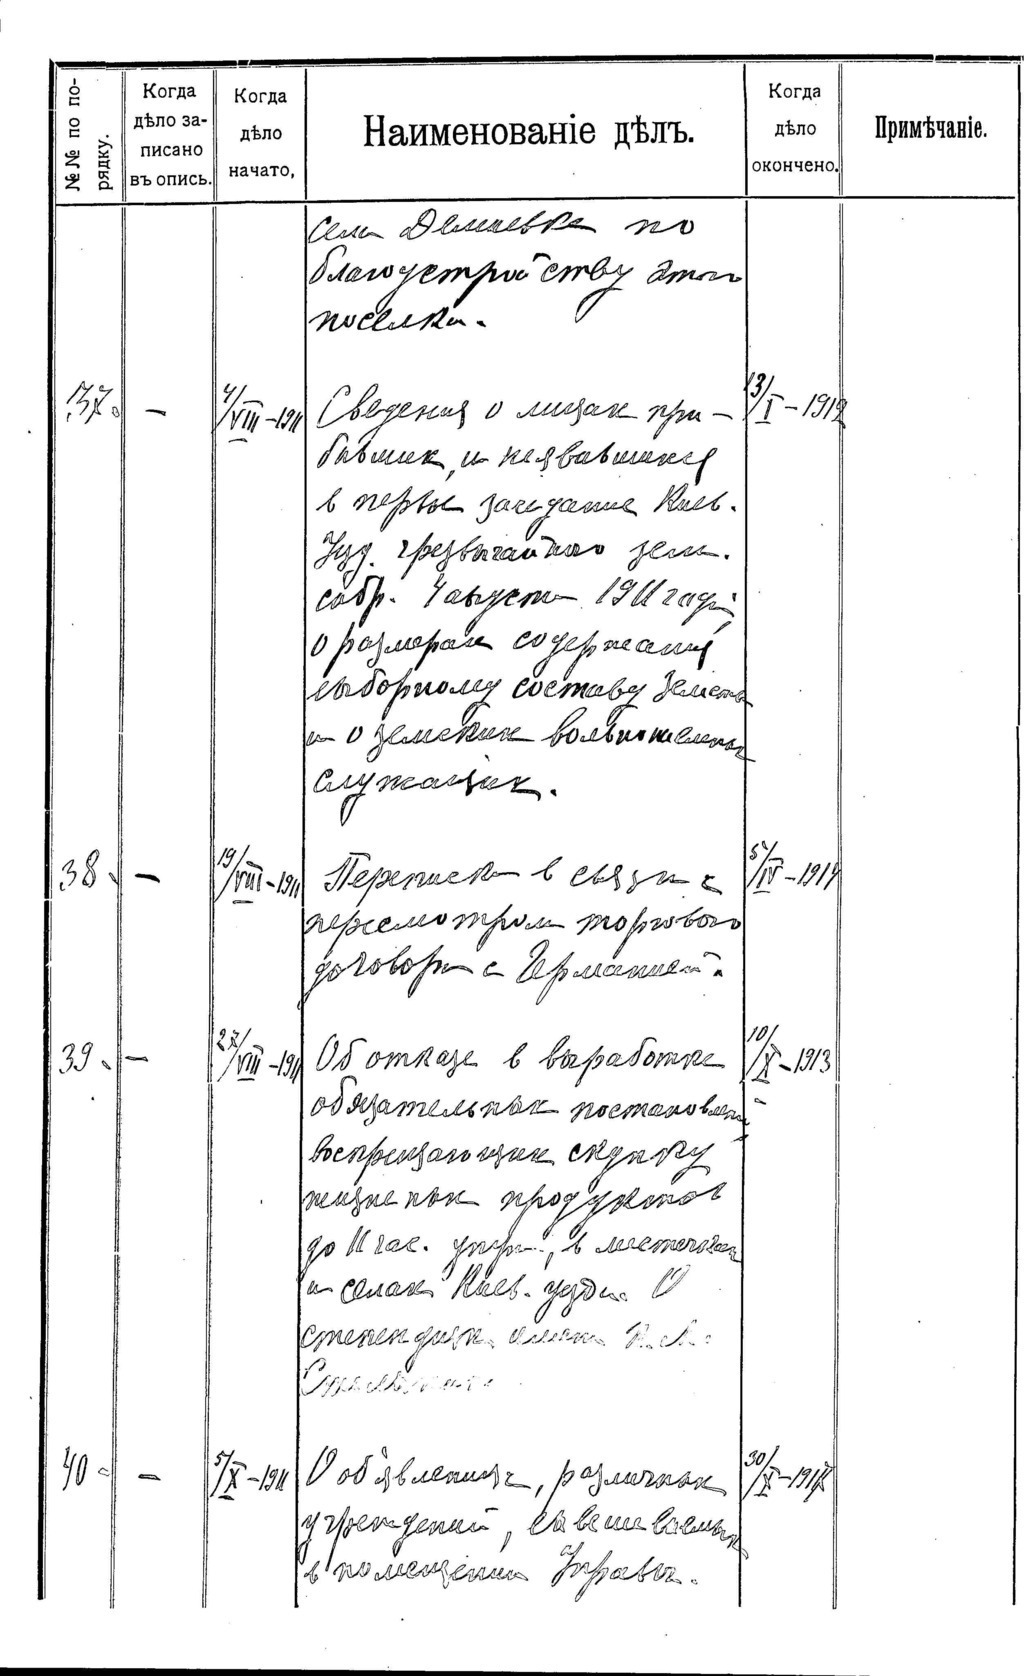 №№ по по-
рядку.
Когда
дѣло за-
писано
въ опись.
Когда
дѣло
начато,
Наименованіе дѣлъ.
Когда
дѣло
окончено.
Примѣчаніе.
села Демиевка по
благоустройству этого
поселка.
37. — 4/VIII-1911 Сведения о лицах при- 13/I-1912
бывших и неявившихся
в первое заседание Киев.
Узд. чрезвычайного зем.
собр. 4 августа 1911 года,
о размерах содержания
выборному составу Земства
и о земских вольнонаемных
служащих.
38. — 19/VIII-1911 Переписка в связи с 5/IV-1914
пересмотром торгового
договора с Германией.
39. — 27/VIII-1911 Об отказе в выработке 10/X-1913
обязательных постановлений
воспрещающих скупку
жизненных продуктов
до 11 час. утра, в местечках
и селах Киев. узда. О
стипендиях имени
40 — 5/X-1911 О объявлениях, различных 30/X-
учреждений, вывешиваемых
в помещении Управы.